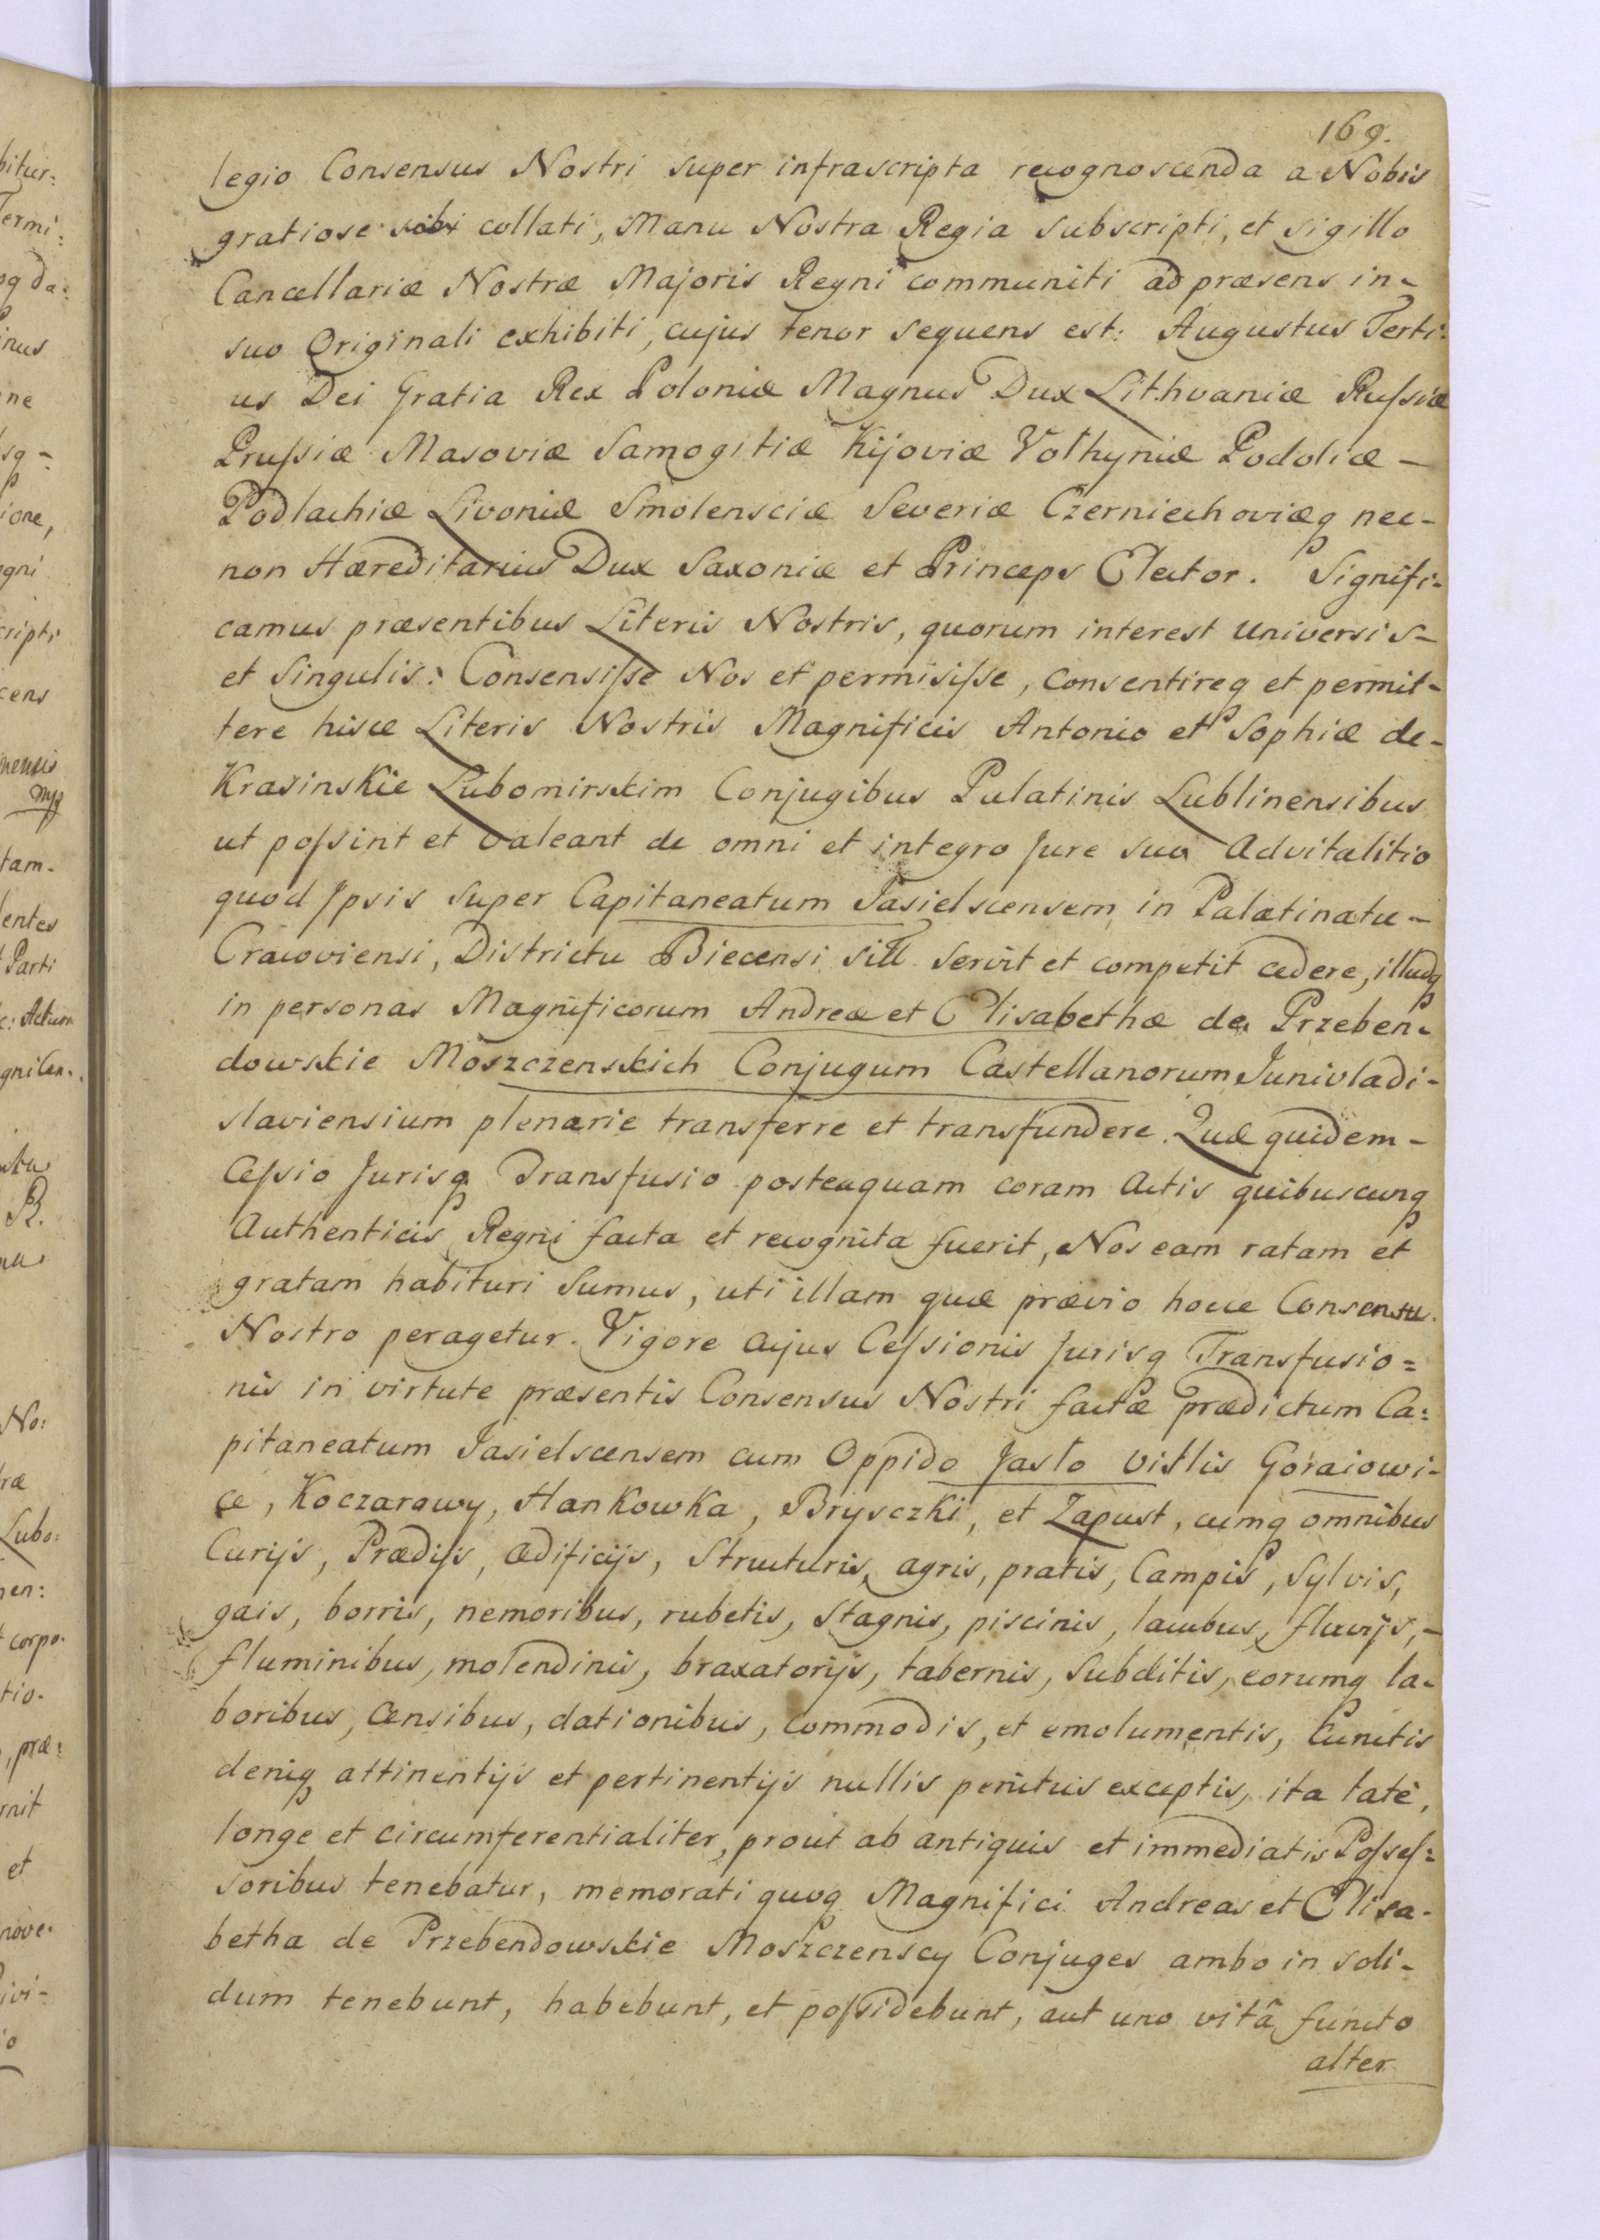 169.
legio Consensus Nostri super infrascripta recognoscenda a Nobis
gratiose sibi collati, Manu Nostra Regia subscripti, et sigillo
Cancellariæ Nostræ Majoris Regni communiti ad præsens in-
suo Originali exhibiti, cujus tenor sequens est: Augustus Terti-
us Dei Gratia Rex Poloniæ Magnus Dux Lithvaniæ Ruſsiæ
Pruſsiæ Masoviæ Samogitiæ Kijoviæ Volhyniæ Podoliæ -
Podlachiæ Livoniæ Smolensciæ Severiæ Czerniechoviæq nec-
non Hæreditarius Dux Saxoniæ et Princeps Elector. Signifi-
camus præsentibus Literis Nostris, quorum interest universis-
et Singulis: Consensiſse Nos et permisiſse, consentireq et permit-
tere hisce Literis Nostris Magnificis Antonio et Sophiæ de-
Krasinskie Lubomirskim Conjugibus Palatinis Lublinensibus
ut poſsint et valeant de omni et integro Jure suo Advitalitio
quod Ipsis super Capitaneatum Jasielscensem in Palatinatu-
Cracoviensi, Districtu Biecensi sitt. servit et competit cedere, illudq
in personas Magnificorum Andreæ et Elisabethæ de Przeben-
dowskie Moszczenskich Conjugum Castellanorum Junivladi-
slaviensium plenarie transferre et transfundere. Quæ quidem-
Ceſsio Jurisq Transfusio posteaquam coram Actis quibuscunq
Authenticis Regni facta et recognita fuerit, Nos eam ratam et
gratam habituri sumus, uti illam quæ prævio hocce Consensu
Nostro peragetur. Vigore cujus Ceſsionis Jurisq Transfusio=
nis in virtute præsentis Consensus Nostri factæ prædictum Ca:
pitaneatum Jasielscensem cum Oppido Jasło villis Goraiowi-
ce, Koczarowy, Hankowka, Brysczki, et Zapust, cumq omnibus
Curijs, Prædijs, ædificijs, Structuris, agris, pratis, Campis, Sylvis,
gais, borris, nemoribus, rubetis, Stagnis, piscinis, lacubus, fluvijs,-
fluminibus, molendinis, braxatorijs, tabernis, subditis, eorumq la-
boribus, censibus, dationibus, commodis, et emolumentis, Cunctis
deniq attinentijs et pertinentijs nullis penitus exceptis, ita latè,
longe et circumferentialiter, prout ab antiquis et immediatis Poſseſ:
soribus tenebatur, memorati quoq Magnifici Andreas et Elisa-
betha de Przebendowskie Moszczenscy Conjuges ambo in soli-
dum tenebunt, habebunt, et poſsidebunt, aut uno vitâ functo
alter